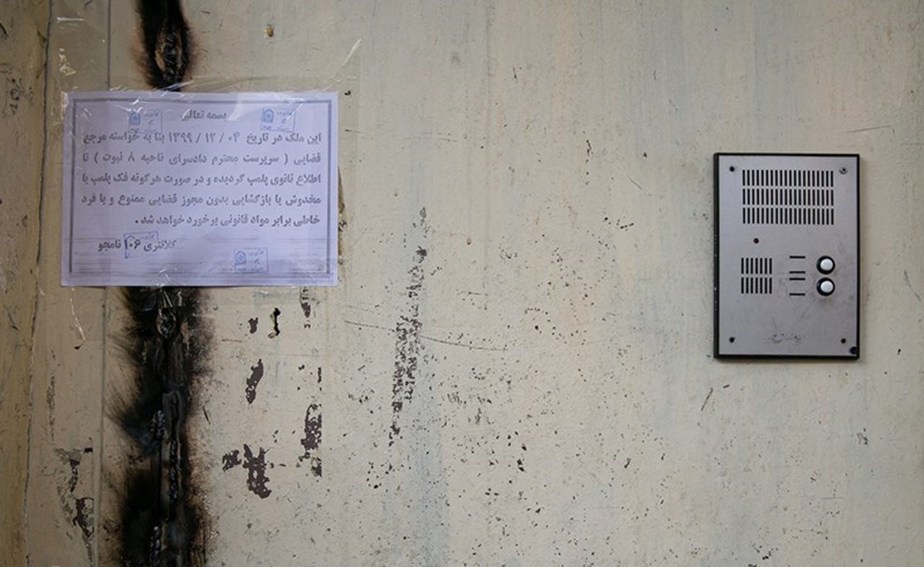 بسمه تعالی
این ملک در تاریخ ۱۳۹۹/۱۲/۰۴ بنا به خواسته مرجع
قضایی ( سرپرست محترم دادسرای ناحیه ۸ نبوت ) تا
اطلاع ثانوی پلمپ گردیده و در صورت هرگونه فک پلمپ یا
مخدوش یا بازگشایی بدون مجوز قضایی ممنوع و با فرد
خاطی برابر مواد قانونی برخورد خواهد شد .
کلانتری ۱۰۶ نامجو